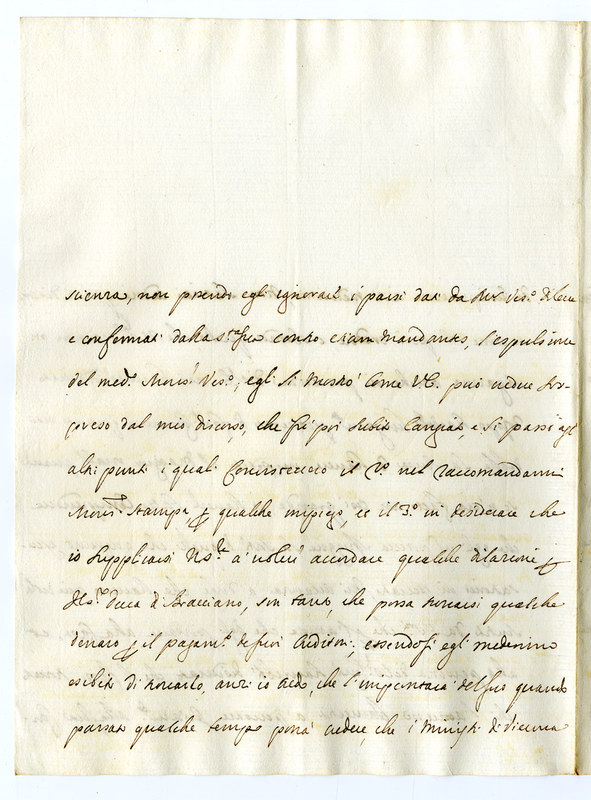 scienza, non prende egli ignorati i passi dati da Mr Ves.º di Lecce
e confermati dalla S.tà Sua contro etiam Mandantes, l'espulsione
del med.º Mons.r Ves.º; egli si mostrò come V.E. può vedere sor-
preso dal mio discorso, che fù poi subito cangiato, e si passò agl'
altri punti i quali consisterono il 2.º nel raccomandarmi
Mons.r Stampa per qualche impiego, et il 3.º in desiderare che
io supplicassi N.S.re à voler accordare qualche dilazione per
il S.r Duca di Bracciano, sin tanto, che possa trovarsi qualche
denaro per il pagam.to de suoi Creditori, essendosi egli medesimo
esibito di trovarlo, anzi io credo, che l'importanza del suo quando
passato qualche tempo potrà vedere, che i Ministri di Vienna